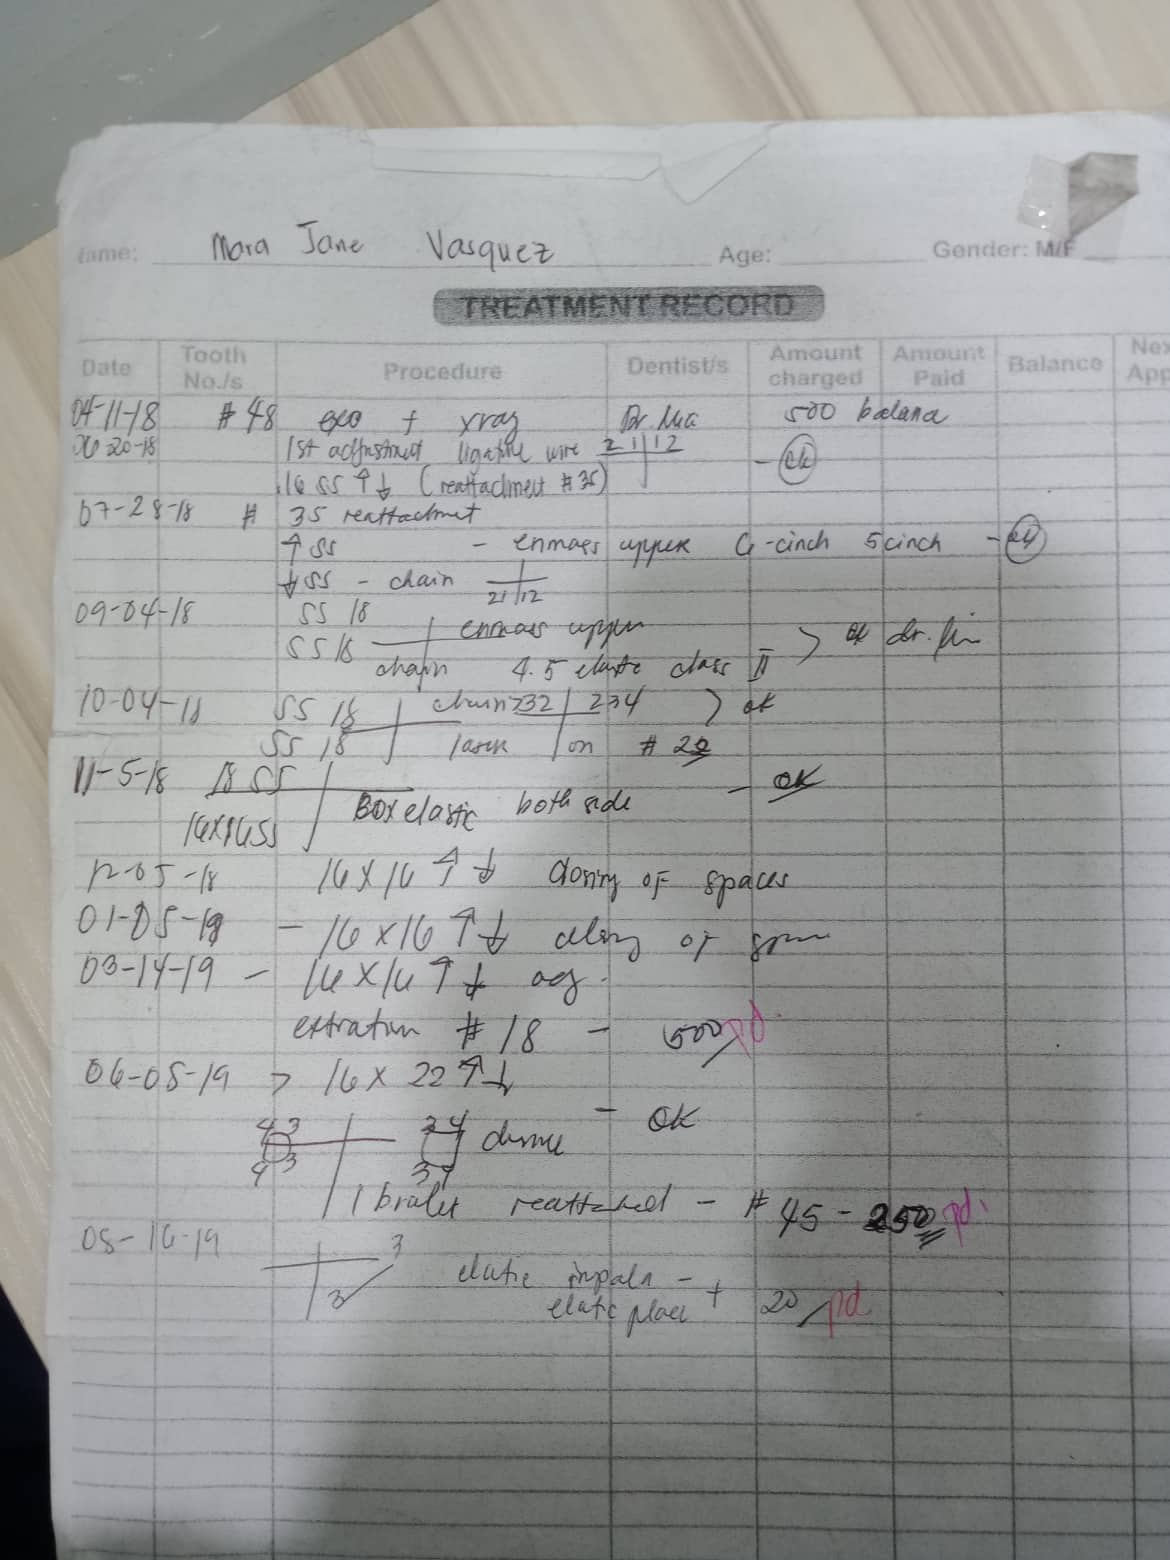 Name: Mara Jane Vasquez Age: Gender: M/F
TREATMENT RECORD
Date Tooth No./s Procedure Dentist/s Amount charged Amount Paid Balance Nex App
04-11-18 #48 exo + xray Dr. Mia 500 balance
06 20-18 1st adjustment ligature wire 21|12
.16 SS ↑↓ (reattachment #35) - ok
07-28-18 # 35 reattachment
↑ SS - enmass upper G-cinch 5 cinch -
↓ SS - chain 21|12
09-04-18 SS 18 enmass upper
SS 18 chain 4.5 elastic class II > ok dr.
10-04-18 SS 18 chain 232 | 234 > ok
SS 18 laser on # 22
11-5-18 18 SS - OK
16x16 SS Box elastic both side
12-05-18 16 x 16 ↑↓ closing of spaces
01-05-19 - 16 x 16 ↑↓ closing of
03-14-19 - 16 x 16 ↑↓ adj.
# 18 - 500/pd.
06-05-19 > 16 x 22 ↑↓
43 34 - OK
43 34
1 reattached - # 45 - 250 pd.
08-16-19 3
3 elastic -
elastic + 20/pd